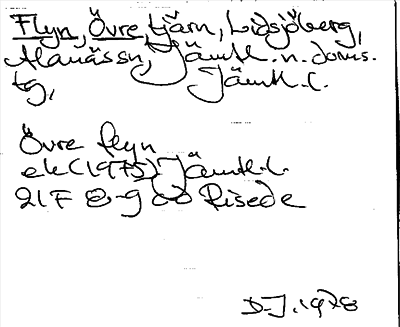 Flyn, Övre, tjärn, Lidsjöberg,
Alanässn, Jämtl. n. doms.
tg, Jämtl. l.
Övre flyn
ek (1975) Jämtl. l.
21F 8-9 cd Risede
D-J. 1978